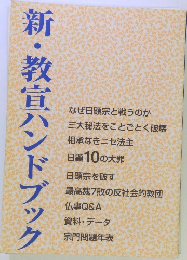 新・教宣ハンドブック
なぜ日顕宗と戦うのか
三大秘法をことごとく破壊
相承なきニセ法主
日顕10の大罪
日顕宗を破す
最高裁7敗の反社会的教団
仏事Q&A
資料・データ
宗門問題年表